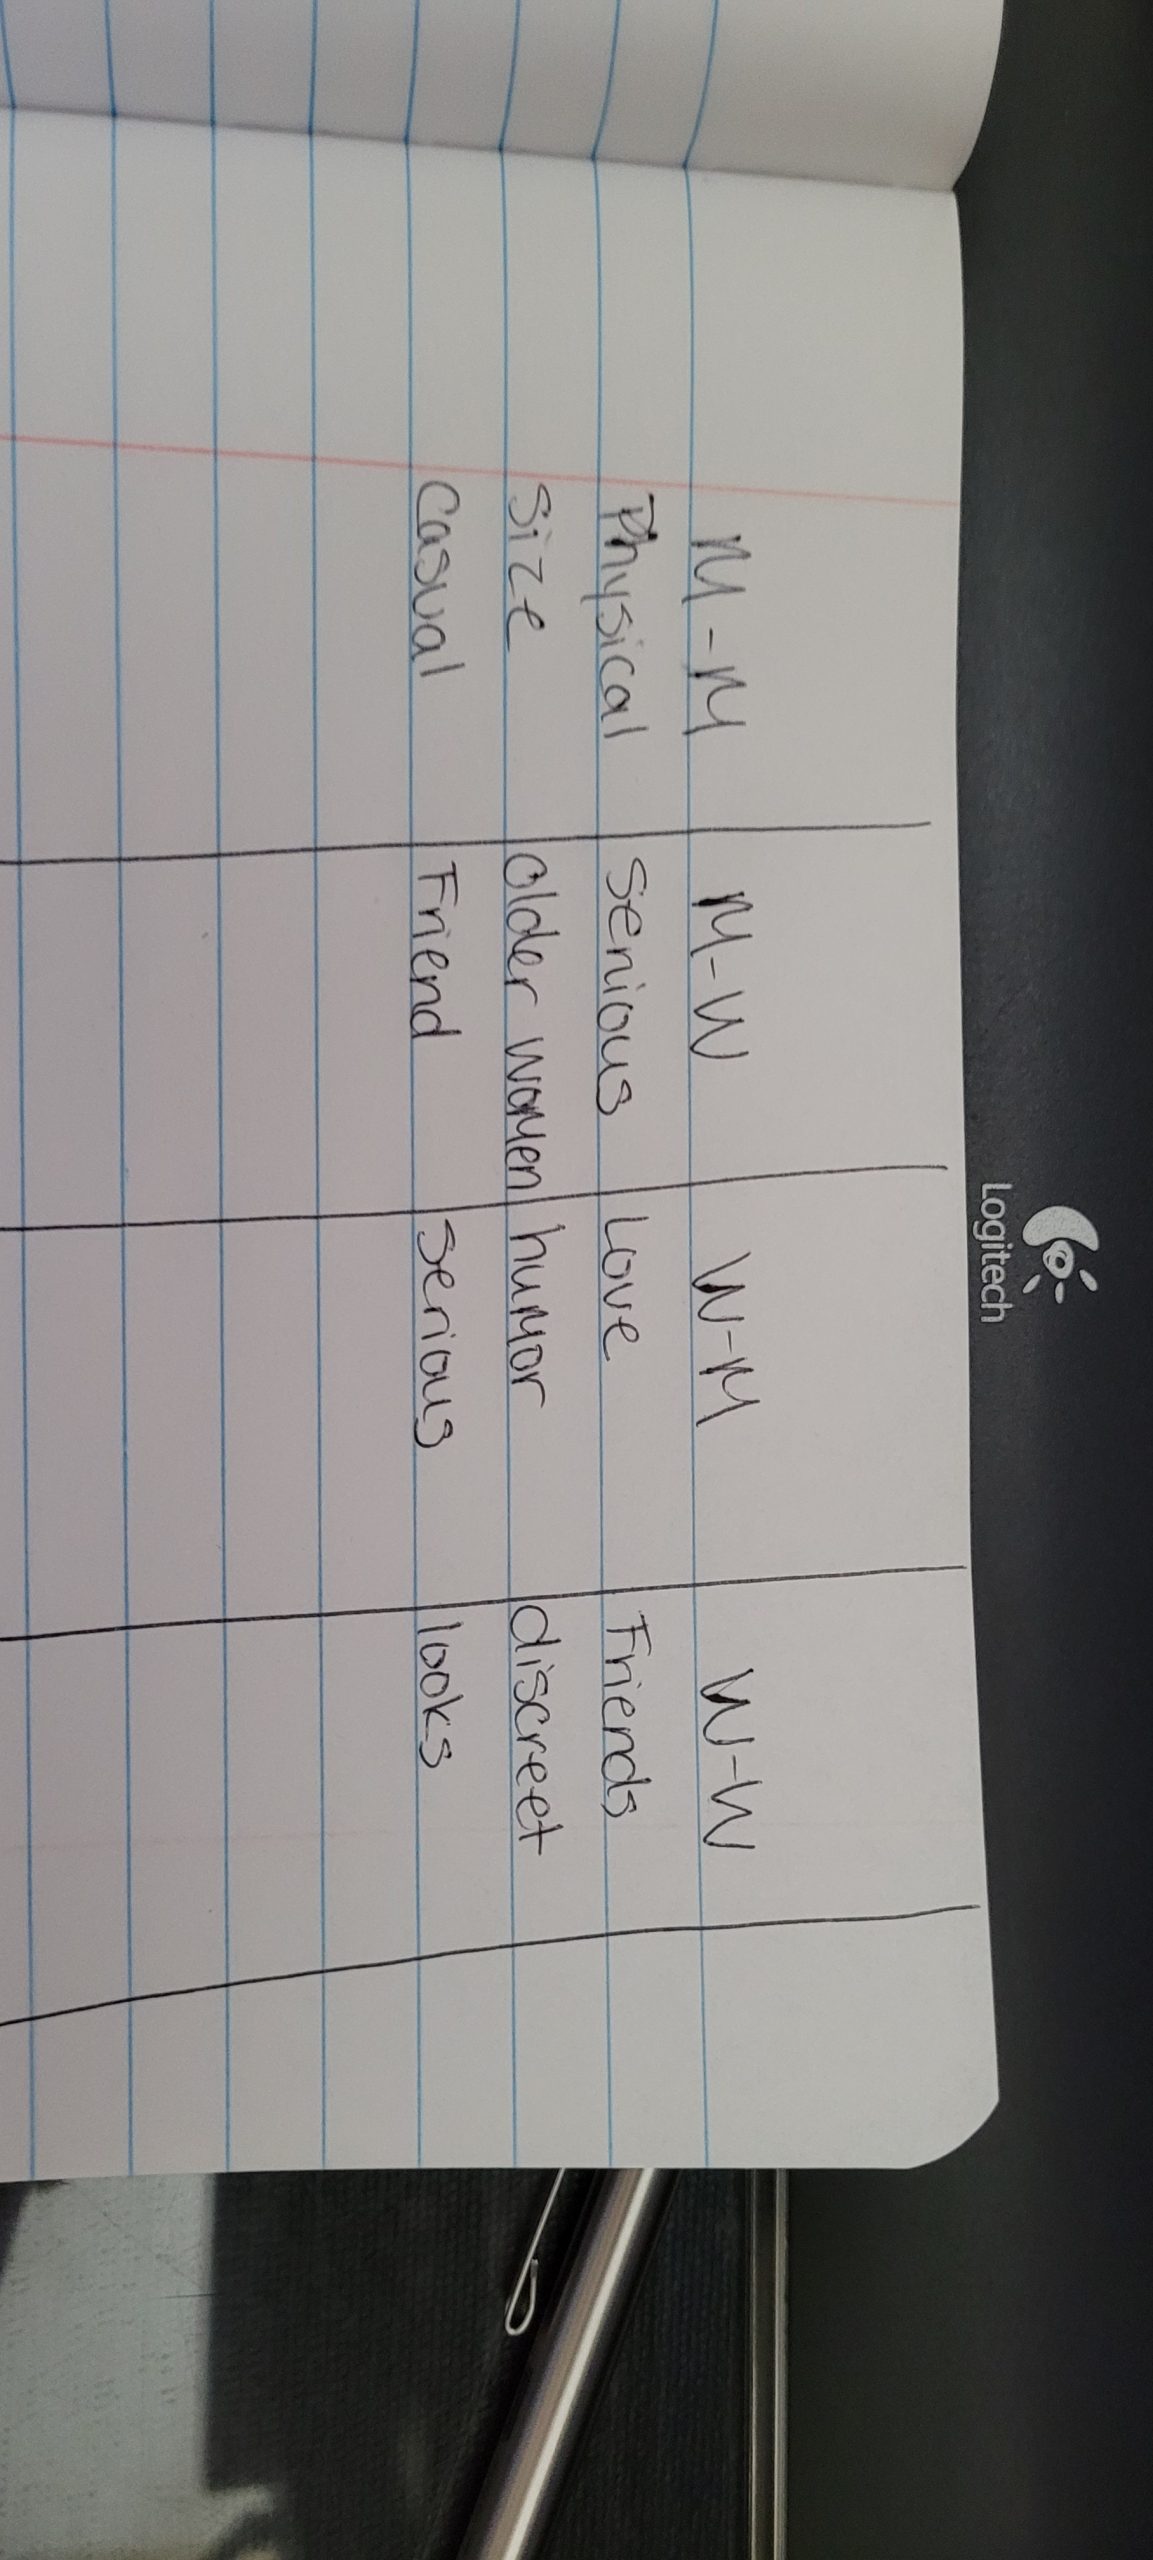 Logitech
M-M M-W W-M W-W
Physical Serious Love Friends
Size older women humor discreet
Casual Friend Serious looks